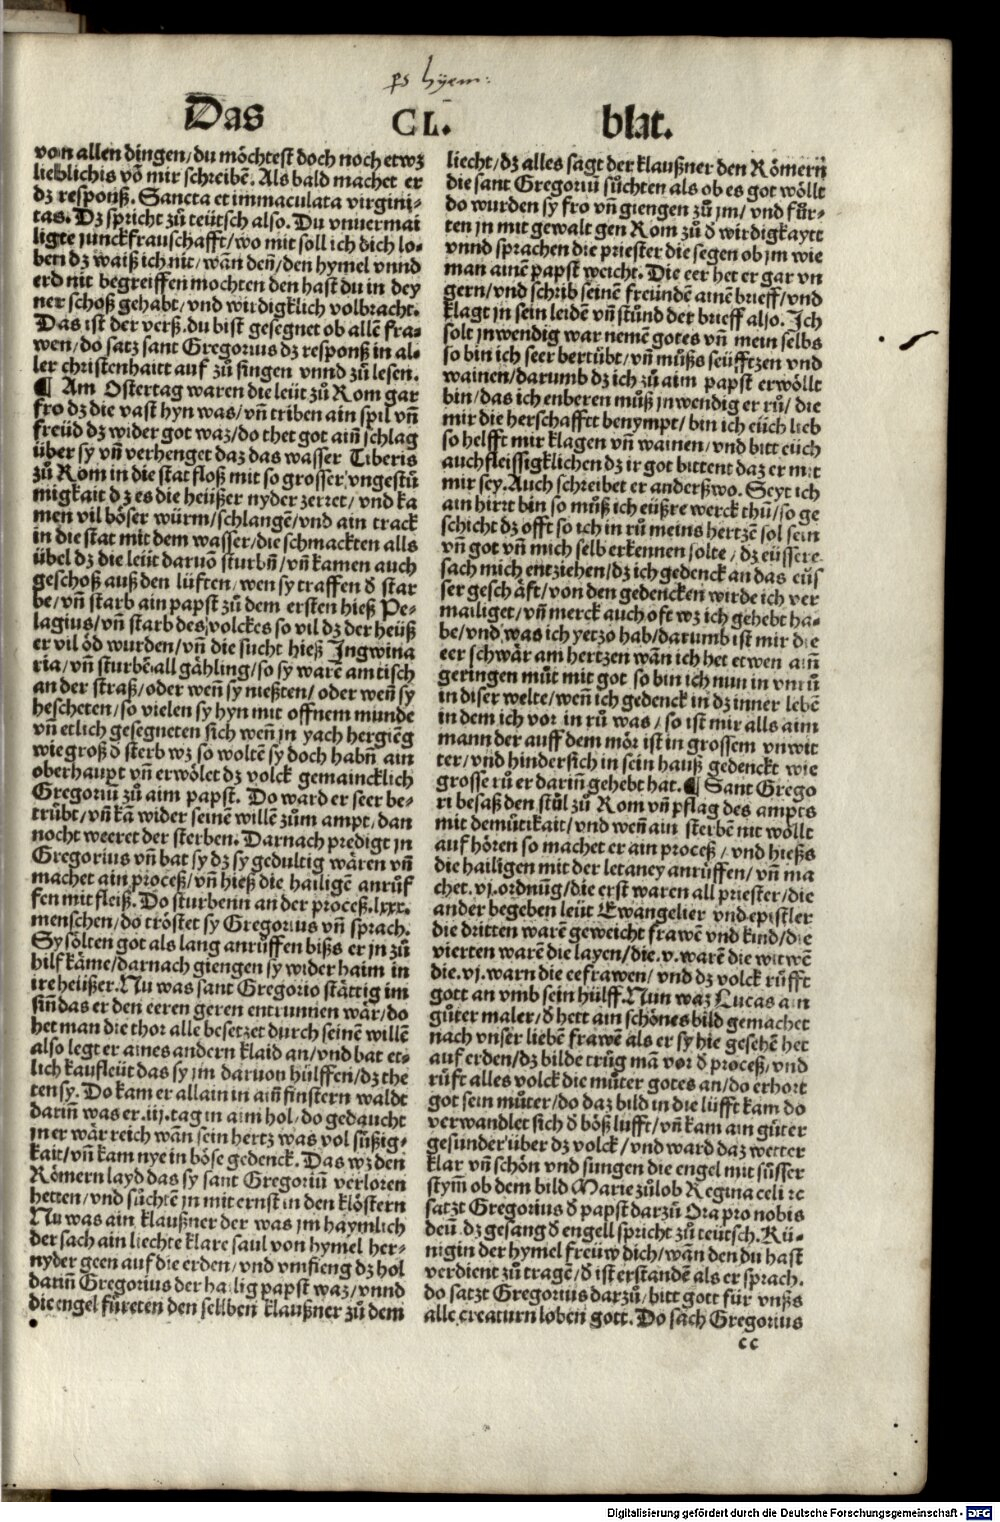 ps hyem:
Das CL. blat.
von allen dingen/du möchtest doch noch etwz
lieblichis võ mir schreibẽ. Als bald machet er
dz responß. Sancta et immaculata virgini-
tas. Dz spricht zů teütsch also. Du vnuermai
ligte junckfrauschafft/wo mit soll ich dich lo-
ben dz waiß ich nit/wãn deñ/den hymel vnnd
erd nit begreiffen mochten den hast du in dey
ner schoß gehabt/vnd wirdigklich volbracht.
Das ist der verß. du bist gesegnet ob allẽ fra-
wen/do satz sant Gregorius dz responß in al-
ler christenhaitt auf zů singen vnnd zů lesen.
¶ Am Ostertag waren die leüt zů Rom gar
fro dz die vast hyn was/vñ triben ain spil vñ
freüd dz wider got waz/do thet got aiñ schlag
über sy vñ verhenget daz das wasser Tiberis
zů Rom in die stat floß mit so grosser vngestů
migkait dz es die heüßer nyder zerret/vnd ka
men vil böser würm/schlangẽ/vnd ain track
in die stat mit dem wasser/die schmackten alls
übel dz die leüt daruõ sturbñ/vñ kamen auch
geschoß auß den lüften/wen sy traffen d̃ star
be/vñ starb ain papst zů dem ersten hieß Pe-
lagius/vñ starb des volckes so vil dz der heüß
er vil öd wurden/vñ die sucht hieß Ingwina
ria/vñ sturbẽ all gähling/so sy warẽ am tisch
an der straß/oder weñ sy nießten/oder weñ sy
hescheten/so vielen sy hyn mit offnem munde
vñ etlich gesegneten sich weñ jn yach hergiẽg
wie groß d̃ sterb wz so woltẽ sy doch habñ ain
oberhaupt vñ erwölet dz volck gemaincklich
Gregoriũ zů aim papst. Do ward er seer be-
trübt/vñ kã wider seinẽ willẽ zům ampt/dan
nocht weeret der sterben. Darnach predigt jn
Gregorius vñ bat sy dz sy gedultig wären vñ
machet ain proceß/vñ hieß die hailigẽ anrüf
fen mit fleiß. Do sturbenn an der proceß.lxxx.
menschen/do tröstet sy Gregorius vñ sprach.
Sy sölten got als lang anrüffen bißs er jn zů
hilf käme/darnach giengen sy wider haim in
ire heüßer. Nu was sant Gregorio stättig im
siñ das er den eeren geren entrunnen wär/do
het man die thor alle besetzet durch seinẽ willẽ
also legt er aines andern klaid an/vnd bat et-
lich kaufleüt das sy im daruon hülffen/dz the
ten sy. Do kam er allain in aiñ finstern waldt
dariñ was er.iij.tag in aim hol/do gedaucht
jn er wär reich wãn sein hertz was vol süßig-
kait/vñ kam nye in böse gedenck. Das wz den
Römern layd das sy sant Gregoriũ verloren
hetten/vnd sůchtẽ jn mit ernst in den klöstern
Nu was ain klaußner der was jm haymlich
der sach ain liechte klare saul von hymel her-
nyder geen auf die erden/vnd vmfieng dz hol
dariñ Gregorius der hailig papst waz/vnnd
die engel füreten den sellben klaußner zů dem
liecht/dz alles sagt der klaußner den Römern
die sant Gregoriũ sůchten als ob es got wöllt
do wurden sy fro vñ giengen zů jm/vnd fůr-
ten jn mit gewalt gen Rom zů d̃ wirdigkaytt
vnnd sprachen die priester die segen ob jm wie
man ainẽ papst weicht. Die eer het er gar vn
gern/vnd schrib seinẽ freündẽ ainẽ brieff/vnd
klagt jn sein leidẽ vñ stůnd der brieff also. Ich
solt jnwendig war nemẽ gotes vñ mein selbs
so bin ich seer bertübt/vñ můßs seüfftzen vnd
wainen/darumb dz ich zů aim papst erwöllt
bin/das ich enberen můß jnwendig er rů/die
mir die herschafft benympt/bin ich eüch lieb
so helfft mir klagen vñ wainen/vnd bitt eüch
auch fleissigklichen dz ir got bittent daz er mit
mir sey. Auch schreibet er anderßwo. Seyt ich
ain hirt bin so můß ich eüßre werck thů/so ge
schicht dz offt so ich in rů meins hertzẽ sol sein
vñ got vñ mich selb erkennen solte/dz eüssere
sach mich entziehen/dz ich gedenck an das eüs
ser geschäft/von den gedencken wirde ich ver
mailiget/vñ merck auch oft wz ich gehebt ha-
be/vnd was ich yetzo hab/darumb ist mir die
eer schwär am hertzen wãn ich het etwen aiñ
geringen můt mit got so bin ich nun in vnrů
in diser welte/weñ ich gedenck in dz inner lebẽ
in dem ich vor in rů was/so ist mir alls aim
mann der auff dem mör ist in grossem vnwit
ter/vnd hindersich in sein hauß gedenckt wie
grosse rů er dariñ gehebt hat. ¶ Sant Grego
ri besaß den stůl zů Rom vñ pflag des ampts
mit demůtikait/vnd weñ ain sterbẽ nit wöllt
auf hören so machet er ain proceß/vnd hießs
die hailigen mit der letaney anrüffen/vñ ma
chet.vj.ordnũg/die erst waren all priester/die
ander begeben leüt Ewangelier vnd epistler
die dritten warẽ geweicht frawẽ vnd kind/die
vierten warẽ die layen/die.v.warẽ die witwẽ
die.vj.warn die eefrawen/vnd dz volck růfft
gott an vmb sein hülff. Nun waz Lucas ain
gůter maler/d̃ hett ain schönes bild gemachet
nach vnser liebẽ frawẽ als er sy hie gesehẽ het
auf erden/dz bilde trůg mã vor d̃ proceß/vnd
růft alles volck die můter gotes an/do erhort
got sein můter/do daz bild in die lüfft kam do
verwandlet sich d̃ böß lufft/vñ kam ain gůter
gesunder über dz volck/vnd ward daz wetter
klar vñ schön vnd sungen die engel mit süsser
stym̃ ob dem bild Marie zů lob Regina celi rc
satzt Gregorius d̃ papst darzů Ora pro nobis
deũ. dz gesang d̃ engell spricht zů teütsch. Kü-
nigin der hymel freüw dich/wãn den du hast
verdient zů tragẽ/d̃ ist erstandẽ als er sprach.
do satzt Gregorius darzů/bitt gott für vnßs
alle creaturn loben gott. Do sach Gregorius
cc
Digitalisierung gefördert durch die Deutsche Forschungsgemeinschaft - DFG